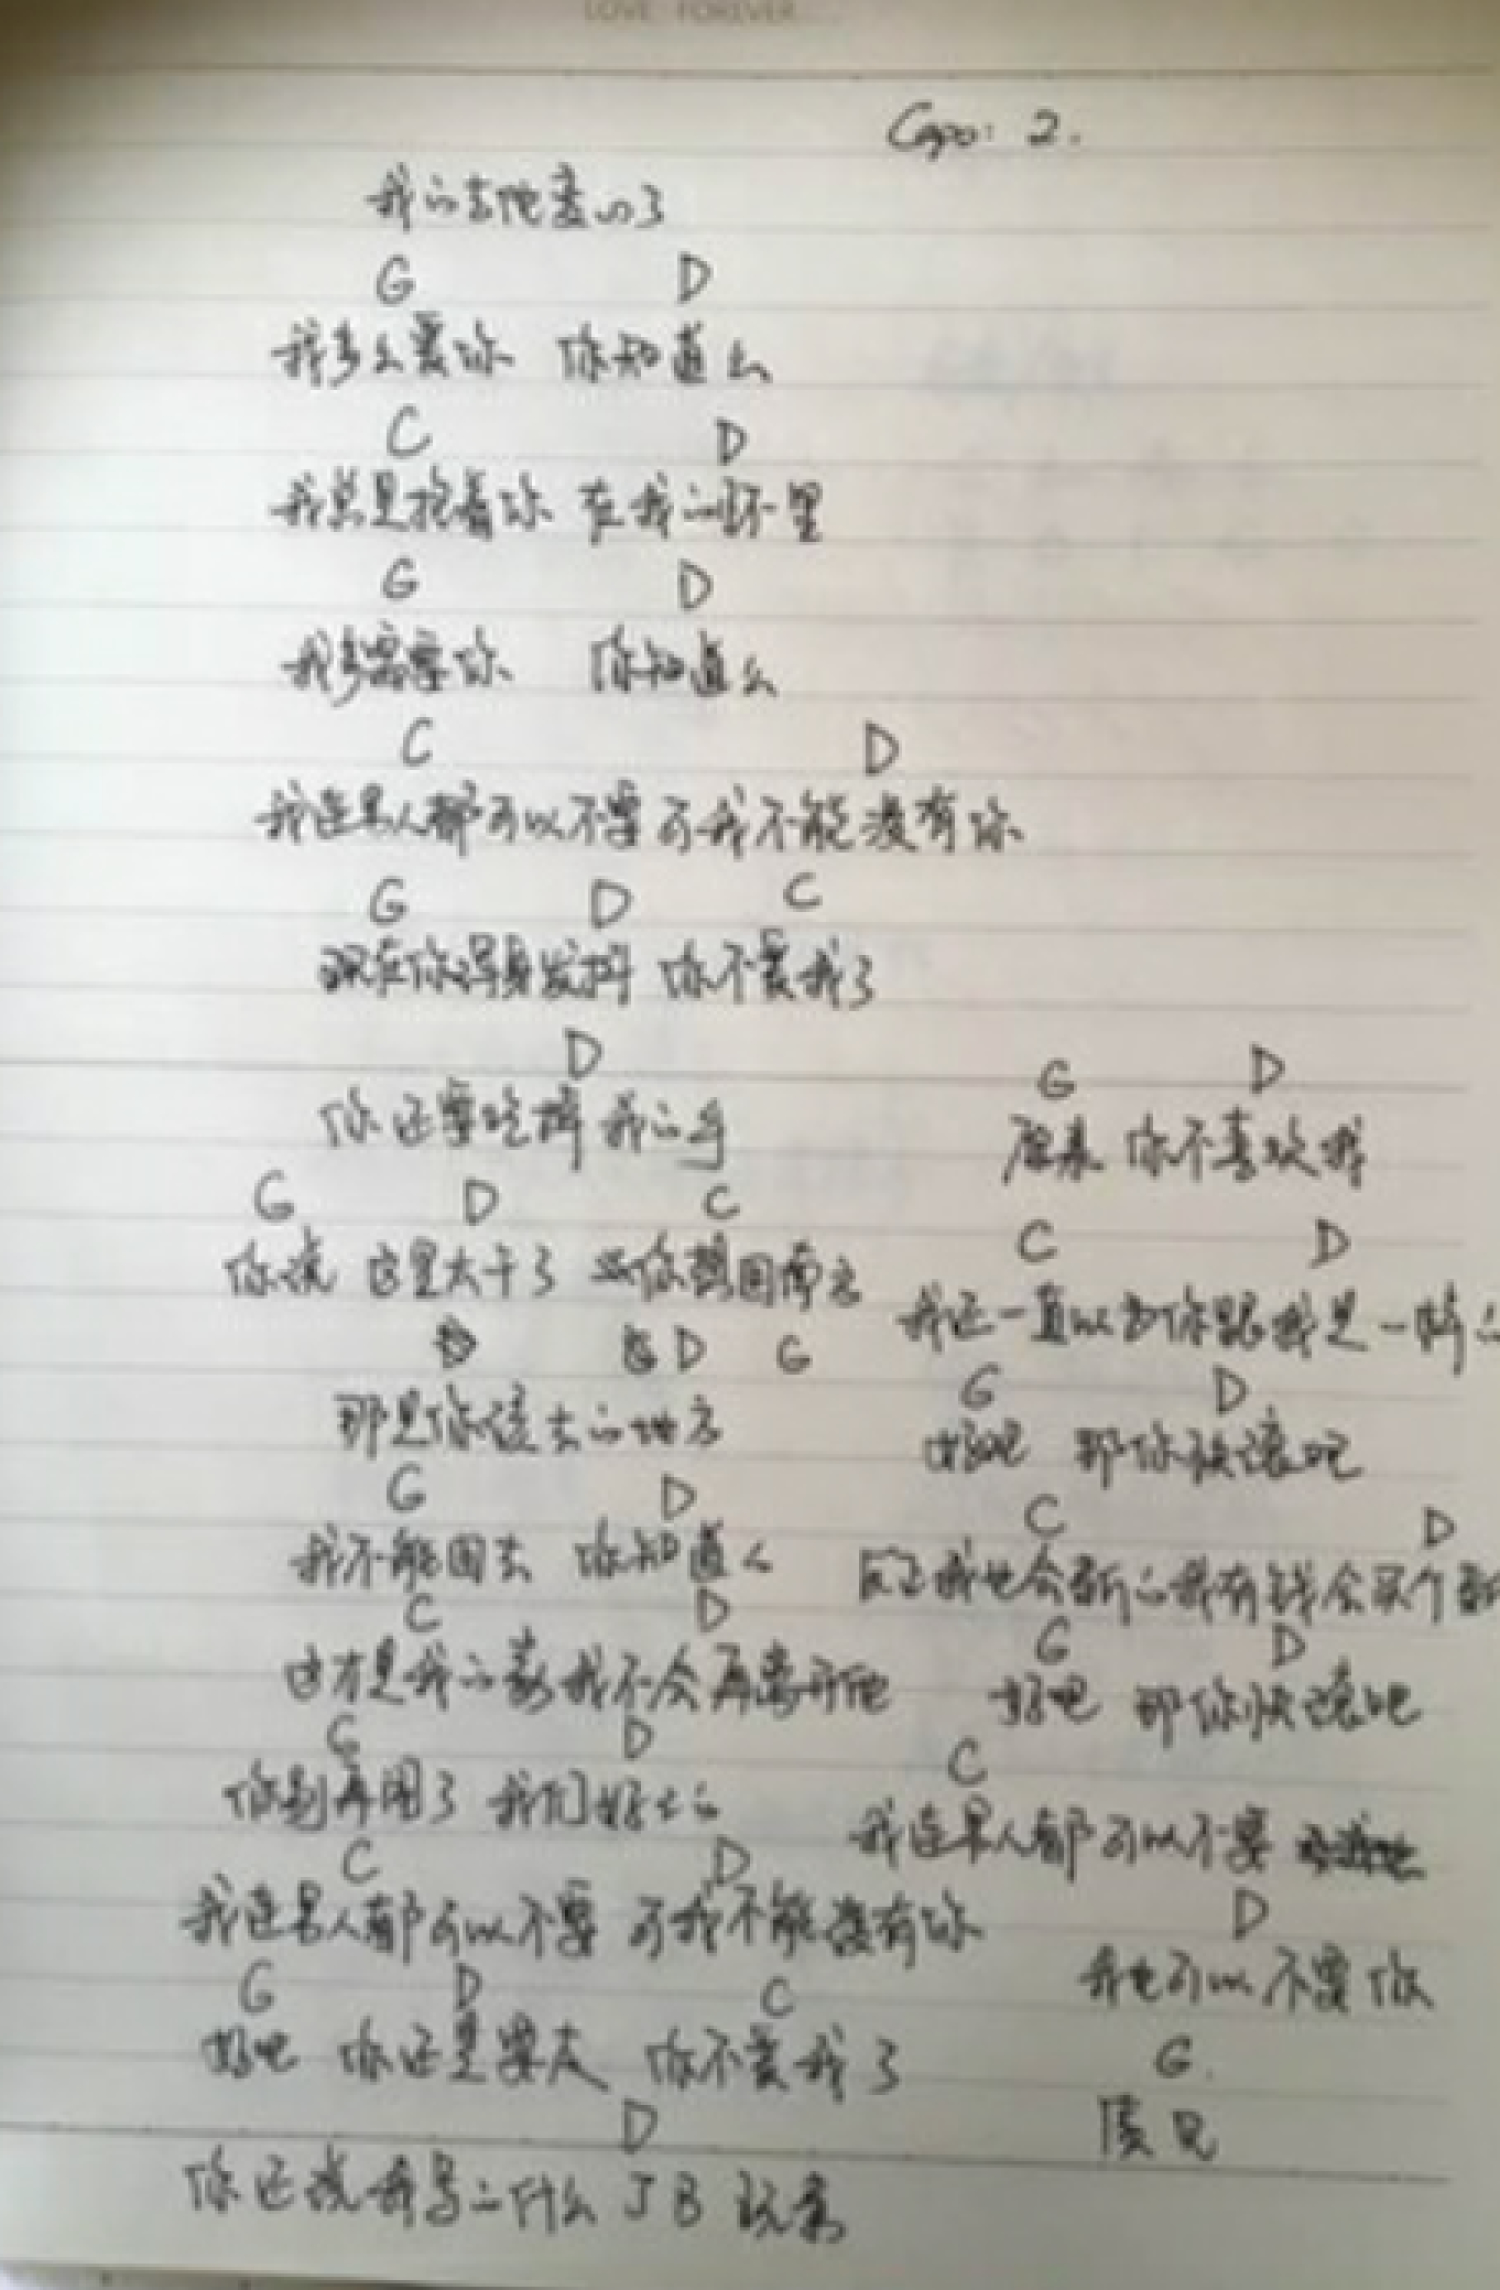 LOVE FOREVER...
Capo: 2.
我的吉他变心了
G D
我多么爱你 你知道么
C D
我总是抱着你 在我的怀里
G D
我多需要你 你知道么
C D
我连男人都可以不要 可我不能没有你
G D C
现在你浑身发抖 你不爱我了
D
你还要吃掉我的手
G D C
你说 这里太干了 你想回南方
D G
那是你该去的地方
G D
我不能回去 你知道么
C D
这才是我的家 我不会再离开他
G D
你别再闹了 我们好好的
C D
我连男人都可以不要 可我不能没有你
G D C
好吧 你还是要走 你不爱我了
D
你还说我写的什么JB玩意
G D
原来 你不喜欢我
C D
我还一直以为你跟我是一样的
G D
好吧 那你快滚吧
C D
反正我也会 我有钱会买个新
G D
好吧 那你快滚吧
C
我连男人都可以不要
D
我也可以不要你
G.